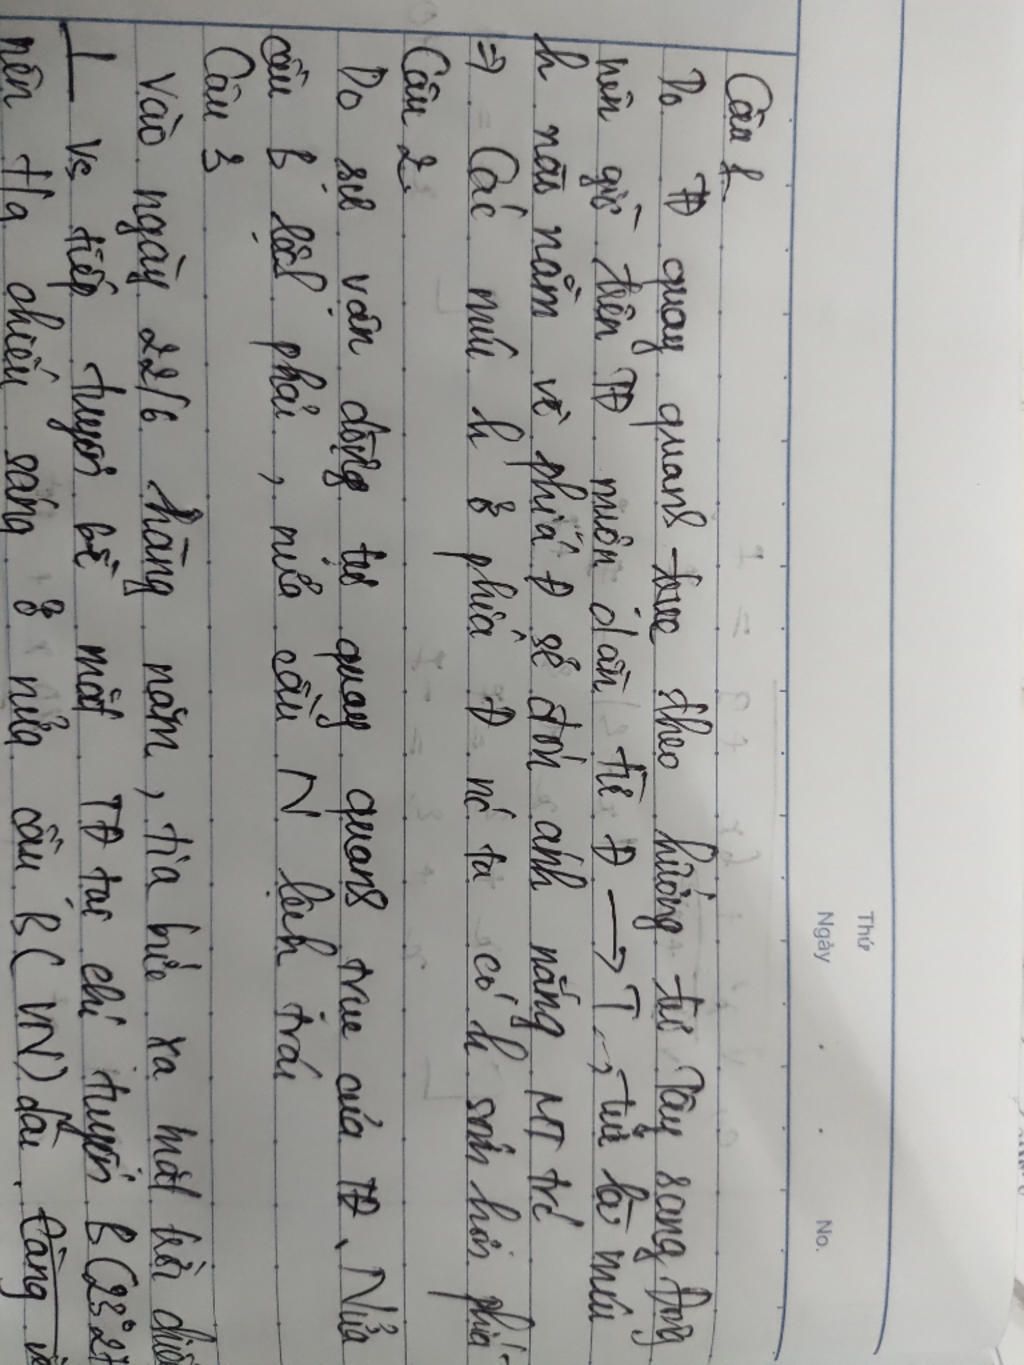 Thứ
Ngày . . No.
Câu 1
Do TĐ quay quanh trục theo hướng từ Tây sang Đông
nên giờ trên TĐ muộn dần từ Đ → T → tức là múi
h nào nằm về phía Đ sẽ đón anh nắng MT trc
⇒ Các múi h ở phía Đ nc ta có h sớm hơn phía
Câu 2.
Do sự vận động tự quay quanh trục của TĐ, Nửa
cầu B lệch phải, nửa cầu N lệch trái
Câu 3
Vào ngày 22/6 hằng năm, tia bức xạ mặt trời chiếu
⊥ vs tiếp tuyến bề mặt TĐ tại chí tuyến B (23°27
nên t/g chiếu sáng ở nửa cầu B (VN) dài. Càng về